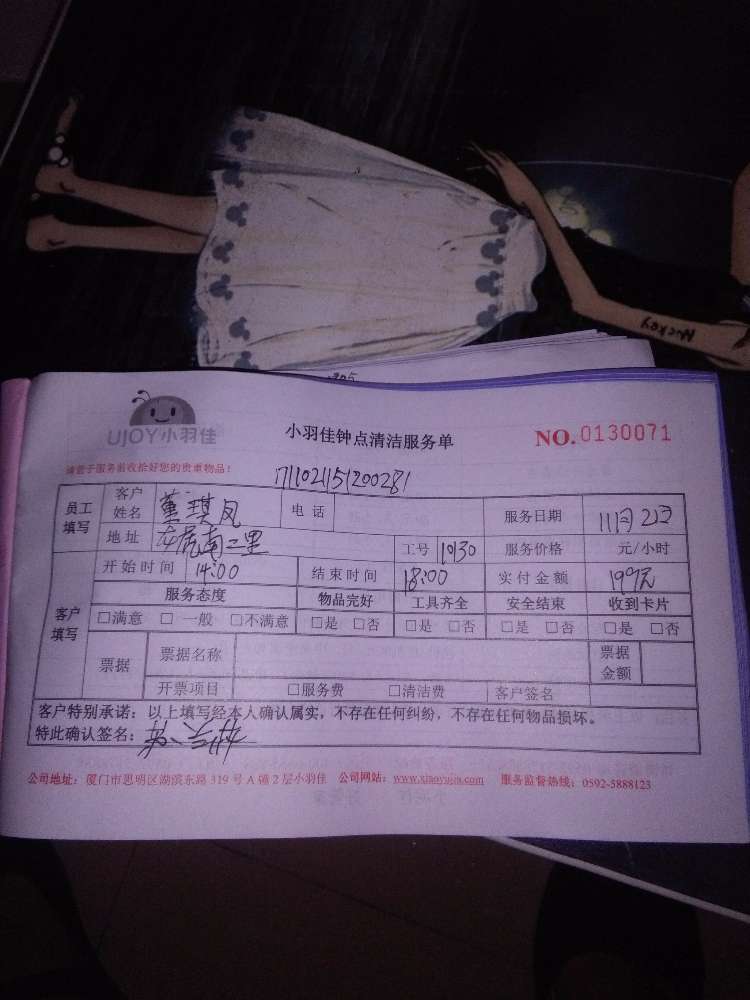 Mickey
UJOY小羽佳
小羽佳钟点清洁服务单
NO.0130071
请您于服务前收拾好您的贵重物品！
1711021151200281
员工填写 客户姓名 董琪凤 电话 服务日期 11月2日
地址 南二里 工号 10130 服务价格 元/小时
客户填写 开始时间 14:00 结束时间 18:00 实付金额 199元
服务态度 物品完好 工具齐全 安全结束 收到卡片
□满意 □一般 □不满意 □是 □否 □是 □否 □是 □否 □是 □否
票据 票据名称 票据金额
开票项目 □服务费 □清洁费 客户签名
客户特别承诺：以上填写经本人确认属实，不存在任何纠纷，不存在任何物品损坏。
特此确认签名：
公司地址：厦门市思明区湖滨东路 319 号 A 铺 2 层小羽佳 公司网站：www.xiaoyujia.com 服务监督热线：0592-5888123